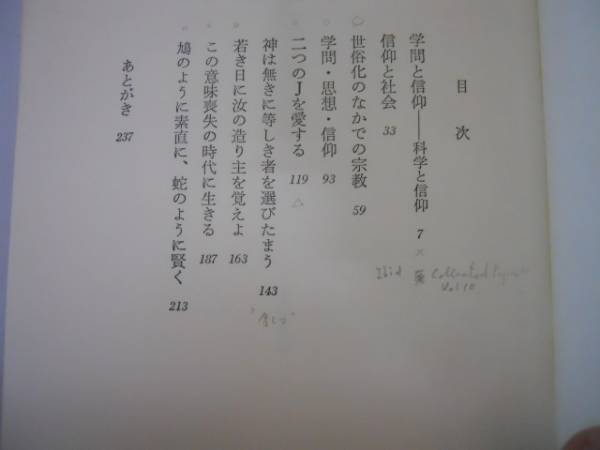 目次
学問と信仰――科学と信仰 7 ×
Collected Papers
Vol 10
信仰と社会 33
Ibid
世俗化のなかでの宗教 59
学問・思想・信仰 93
二つのJを愛する 119 △
神は無きに等しき者を選びたまう 143
若き日に汝の造り主を覚えよ 163
この意味喪失の時代に生きる 187
鳩のように素直に、蛇のように賢く 213
あとがき 237